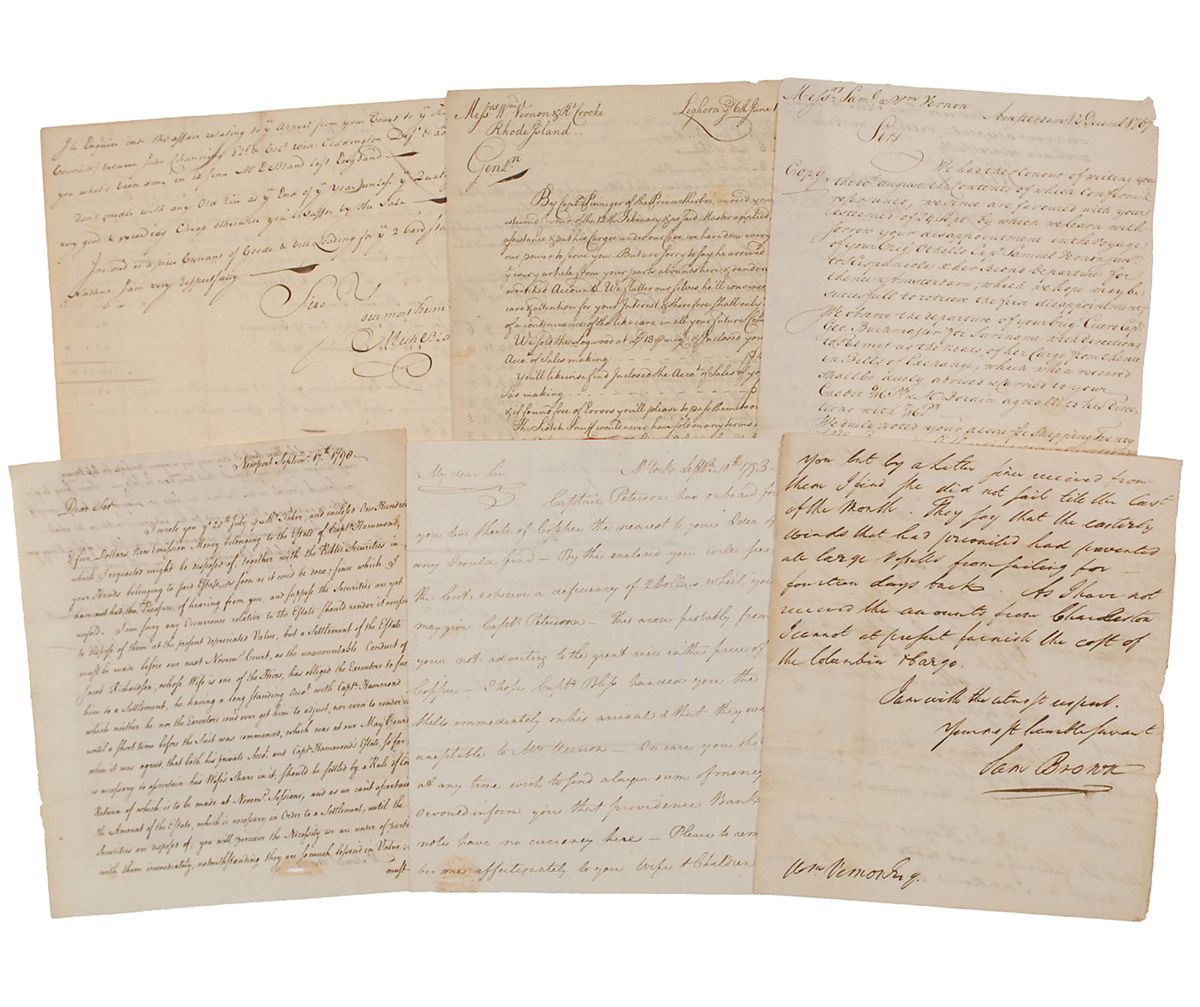 Enquire into the affair relating to yᵉ Appeal from your Court to yᵉ
between John Channing Esqʳ & Will. Coddington
you what's been done in it since Mʳ left England
Don't meddle with any Old Rice at yᵉ End of yᵉ War, unless yᵉ
very good & exceeding Cheap otherwise you'll suffer by the Sale
Inclosed is Invoice of Goods & Bill Lading for yᵉ
I am very respectfully
Sirs
Your most hum
Messʳˢ Wᵐ Vernon & Rᵗ Crooke
Leghorn yᵉ 6th June
Rhode Island
Genᵗⁿ
By Captⁿ Finnigen of the
esteemed favor of the 12th February & said Master applied
assistance & put his Cargoe under our care we have done every
our power to serve you. But are sorry to say he arrived
every article from your parts abounds here & render
We flatter our selves he'll convince
care & attention for your Interest & therefore shall only
of a continuance of the like care in all your future
We sold the Logwood at 13 & inclosed you
Accoᵗ of Sales making
You'll likewise find Inclosed the Accoᵗ of Sales of yo
making
& if found free of Errors you'll please to pass them
The Scotch Snuff would never have sold on any terms
Messʳˢ Samˡ & Wm Vernon
Amsterdam 12 Decemb 1767
Sirs
Copy
We had the honour of writing you
the 6ᵗʰ august the contents of which Confirm &
refer unto, we since are favoured with your
esteemed of 24 Sept. by which we learn with
sorrow your disappointment in the Voyage
of your Brig Othello Capᵗ Samuel Vernon junʳ
to Hispaniola & her second departure for
thence & Amsterdam, which we hope may be
successfull to retrieve the first disappointment,
We observe the departure of your Brig Clare Capᵗ
Geo. Buckmaster for Suriname with directions
to Remit us the neat of her Cargo from thence
in Bills of Exchange, which when received
shall be duely advised & carried to your
Credit
agreable to his Direc
tions with
We duely noted your desire for shipping Twenty
Newport Septemʳ 17.ᵗʰ 1790
Dear Sir
I wrote you yᵉ 20ᵗʰ July & inclose One Hundred
& five Dollars New Emission Money belonging to the Estate of Captⁿ Hammond,
which I requested might be disposed of, together with the Public Securities in
your Hands belonging to said Estate, as soon as it could be done: since which I
have not had the Pleasure of hearing from you, and suppose the Securities are yet
unsold. I am sorry any Occurrence relative to the Estate should render it necess
to dispose of them at the present depreciated Value, but a Settlement of the Estate
must be made before our next Novemʳ Court, as the unaccountable Conduct of
Jacob Richardson, whose Wife is one of the Heirs, has obliged the Executors to sue
him to a Settlement, he having a long standing Accoᵗ with Captⁿ Hammond
which neither he nor the Executors could ever get him to adjust, nor even to render
until a short time before the Suit was commenced, which was at our May Court
when it was agreed, that both his private Accoᵗ and Captⁿ Hammond's Estate, so far
is necessary to ascertain his Wife's Share in it, should be settled by a Rule of
Return of which is to be made at Novemʳ Sessions, and as we cant ascertain
the Amount of the Estate, which is necessary in Order to a Settlement, until the
Securities are disposed of; you will perceive the Necessity we are under of
with them immediately, notwithstanding they are so much depressed in Value
must
My dear Sir
N York Septbʳ 10th 1793
Captain Peterson has onboard for
you two Sheets of Copper the nearest to your Idea of
any I could find – By the enclosed you will per
the Cost, & observe a deficiency of 2 Dollars which you
may give Captⁿ Peterson – This arose probably from
your not adverting to the great rise in the price of
Copper – I hope Captⁿ Bliss handed you the
shells immediately on his arrival & that they were
acceptable to Mrs Vernon – On case you sho
at any time wish to send a larger sum of money
would inform you that providence Bank
notes have no currency here – Please to rem
be me affectionately to your Wife & Children
you but by a Letter since received from
them I find she did not sail till the last
of the Month. They say that the easterly
winds that had prevailed had prevented
all large Vessells from sailing for
fourteen days back. As I have not
received the accounts from Charleston
I cannot at present furnish the cost of
the Columbia & Cargo.
I am with the utmost respect.
Your most humble servant
Sam Brown
Wm Vernon Esq.